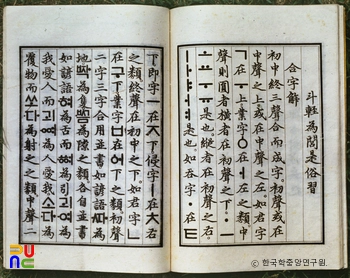 斗輕為閭是俗習
合字解
初中終三聲合而成字。初聲或在
中聲之上或在中聲之左。如君字
ㄱ在ㅜ上業字ㆁ在ㅓ左之類。中
聲則圓者橫者在初聲之下ㆍㅡ
ㅗㅛㅜㅠ是也。縱者在初聲之右ㅣ
ㅏㅑㅓㅕ是也。如呑字ㆍ在ㅌ
下即字ㅡ在ㅈ下侵字ㅣ在ㅊ右
之類。終聲在初中之下。如君字ㄴ
在구下業字ㅂ在ᅌᅥ下之類。初聲
二字三字合用並書如諺語ᄯᅡ為
地ᄧᅡᆨ為隻ᄢᅳᆷ為隙之類。各自並書
如諺語혀為舌而ᅘᅧ為引괴여為
我愛人而괴ᅇᅧ為人愛我소다為
覆物而쏘다為射之之類。中聲二
ⓒ 한국학중앙연구원